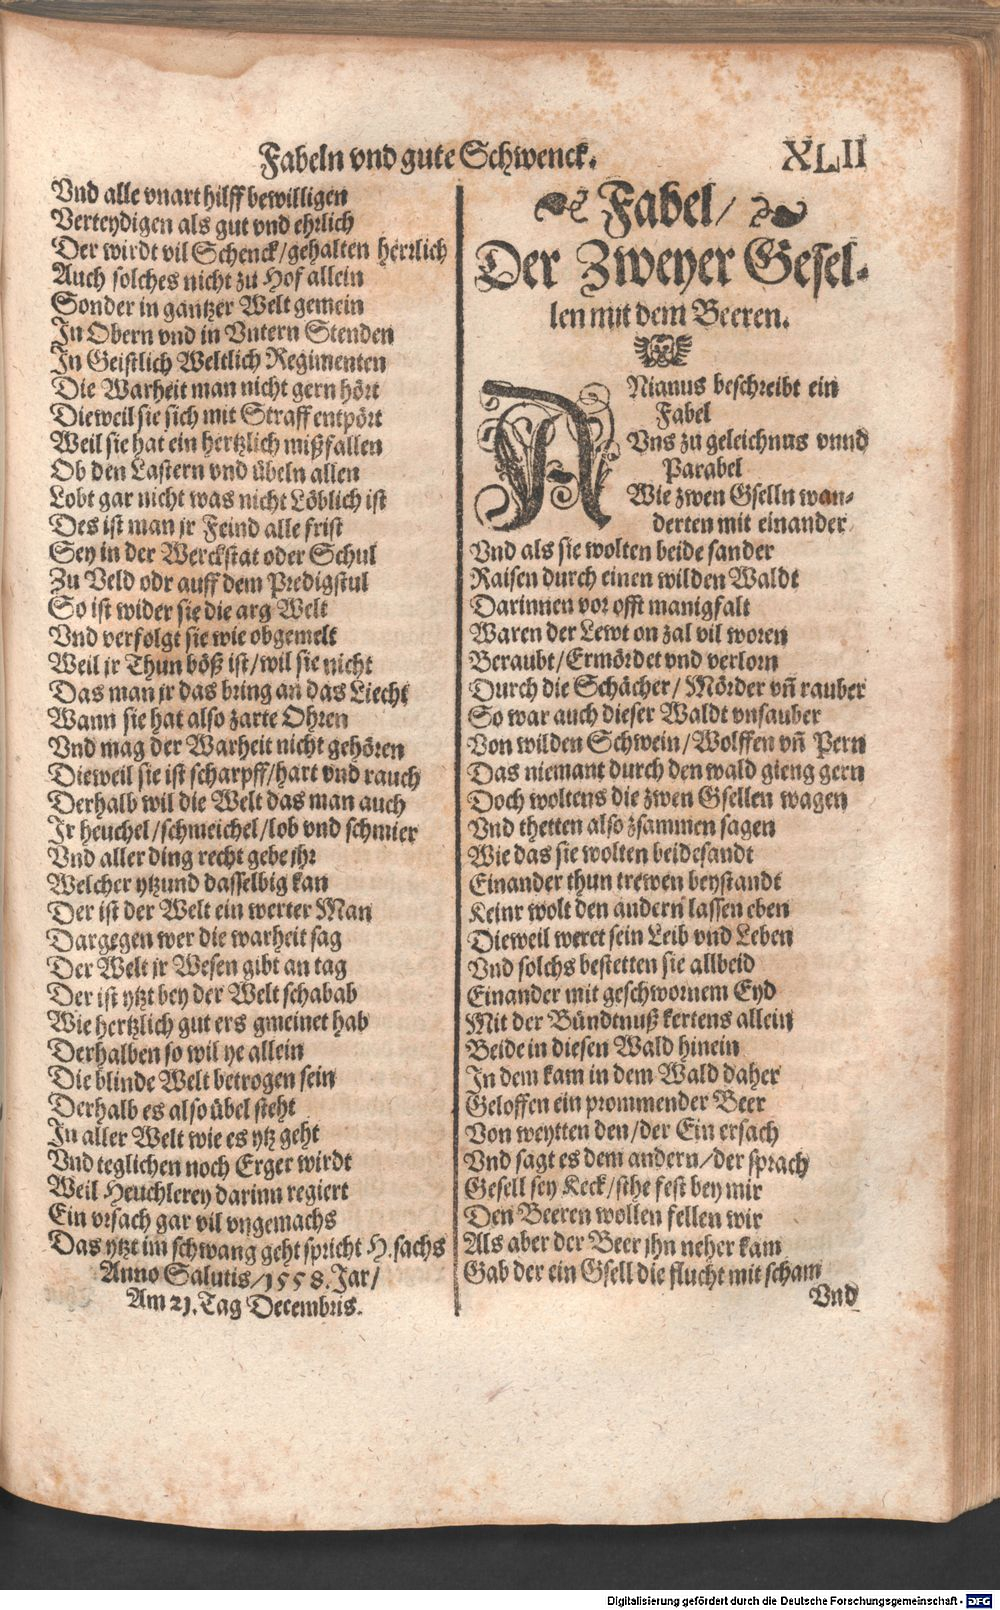 Fabeln vnd gute Schwenck.
XLII
Vnd alle vnart hilff bewilligen
Verteydigen als gut vnd ehrlich
Der wirdt vil Schenck/gehalten herrlich
Auch solches nicht zu Hof allein
Sonder in gantzer Welt gemein
In Obern vnd in Vntern Stenden
In Geistlich Weltlich Regimenten
Die Warheit man nicht gern hört
Dieweil sie sich mit Straff entpört
Weil sie hat ein hertzlich mißfallen
Ob den Lastern vnd übeln allen
Lobt gar nicht was nicht Löblich ist
Des ist man jr Feind alle frist
Sey in der Werckstat oder Schul
Zu Veld odr auff dem Predigstul
So ist wider sie die arg Welt
Vnd verfolgt sie wie obgemelt
Weil jr Thun böß ist/wil sie nicht
Das man jr das bring an das Liecht
Wann sie hat also zarte Ohren
Vnd mag der Warheit nicht gehören
Dieweil sie ist scharpff/hart vnd rauch
Derhalb wil die Welt das man auch
Ir heuchel/schmeichel/lob vnd schmier
Vnd aller ding recht gebe jhr
Welcher ytzund dasselbig kan
Der ist der Welt ein werter Man
Dargegen wer die warheit sag
Der Welt jr Wesen gibt an tag
Der ist ytzt bey der Welt schabab
Wie hertzlich gut ers gmeinet hab
Derhalben so wil ye allein
Die blinde Welt betrogen sein
Derhalb es also übel steht
In aller Welt wie es ytz geht
Vnd teglichen noch Erger wirdt
Weil Heuchlerey darinn regiert
Ein vrsach gar vil vngemachs
Das ytzt im schwang geht spricht H. sachs
Anno Salutis/1558. Jar/
Am 21. Tag Decembris.
Fabel/
Der Zweyer Gesel-
len mit dem Beeren.
ANianus beschreibt ein
Fabel
Vns zu geleichnus vnnd
Parabel
Wie zwen Gselln wan-
derten mit einander
Vnd als sie wolten beide sander
Raisen durch einen wilden Waldt
Darinnen vor offt manigfalt
Waren der Lewt on zal vil woren
Beraubt/Ermördet vnd verlorn
Durch die Schächer/ Mörder vñ rauber
So war auch dieser Waldt vnsauber
Von wilden Schwein/Wolffen vñ Pern
Das niemant durch den wald gieng gern
Doch woltens die zwen Gsellen wagen
Vnd thetten also zsammen sagen
Wie das sie wolten beidesandt
Einander thun trewen beystandt
Keinr wolt den andern lassen eben
Dieweil weret sein Leib vnd Leben
Vnd solchs bestetten sie allbeid
Einander mit geschwornem Eyd
Mit der Bündtnuß kertens allein
Beide in diesen Wald hinein
In dem kam in dem Wald daher
Geloffen ein prommender Beer
Von weytten den/der Ein ersach
Vnd sagt es dem andern/der sprach
Gesell sey Keck/sthe fest bey mir
Den Beeren wollen fellen wir
Als aber der Beer jhn neher kam
Gab der ein Gsell die flucht mit scham
Vnd
Digitalisierung gefördert durch die Deutsche Forschungsgemeinschaft - DFG